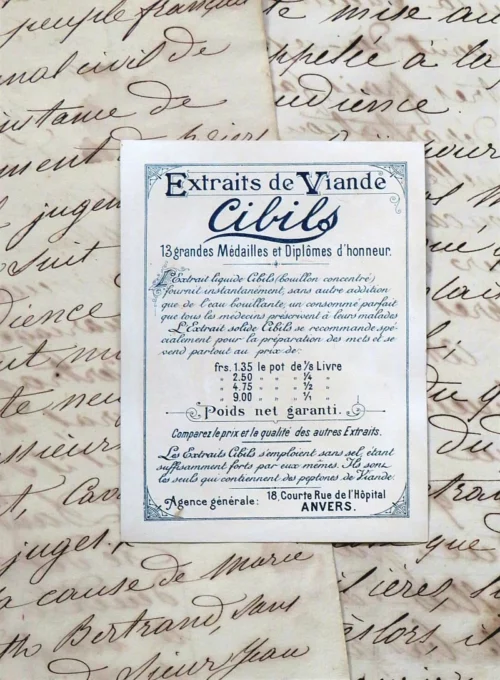 peuple français
te mise au
nal civil de
ppelée à la
udience.
ment
jugem
suit
te neu
juges.
que
a cause de Marie
th Bertrand, sans
sieur Jean
Extraits de Viande
Cibils
13 grandes Médailles et Diplômes d'honneur.
L'Extrait liquide Cibils (bouillon concentré)
fournit instantanément, sans autre addition
que de l'eau bouillante, un consommé parfait
que tous les médecins préscrivent à leurs malades
L'Extrait solide Cibils se recommande spé-
cialement pour la préparation des mets et se
vend partout au prix de:
frs. 1.35 le pot de 1/8 Livre
" 2.50 " " " 1/4 "
" 4.75 " " " 1/2 "
" 9.00 " " " 1/1 "
Poids net garanti.
Comparez le prix et la qualité des autres Extraits.
Les Extraits Cibils s'emploient sans sel, étant
suffisamment forts par eux mêmes. Ils sont
les seuls qui contiennent des peptones de Viande.
Agence générale: 18, Courte Rue de l'Hôpital
ANVERS.